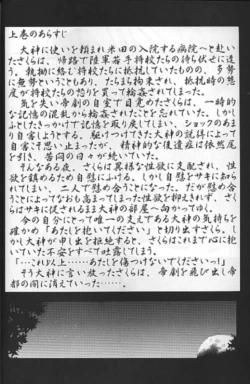 上巻のあらすじ
大神に使いを頼まれ米田の入院する病院へと赴い
たさくらは、帰路で陸軍若手将校たちの待ち伏せに遭
う。執拗に絡む将校たちに抵抗していたものの、多勢
に無勢ということもあり、たちまち拘束され、抵抗時の態
度が将校たちの怒りを買って輪姦されてしまった。
気を失い帝劇の自室で目覚めたさくらは、一時的
な記憶の混乱から輪姦されたことを忘れていた。しかし
ふとしたきっかけで記憶を取り戻してしまい、ショックのあま
り自害しようとする。駆けつけてきた大神の説得によって
自害こそ思い止まったが、精神的な後遺症は依然尾
を引き、苦悶の日々が続いていた。
そんなある夜、さくらは異様な性欲に支配され、性
欲を鎮めるため自慰にふける。しかし自慰をサキに知ら
れてしまい、二人で慰め合うことになった。だが慰め合
うことによってなおも高まってしまった性欲を抑えきれず、さく
らはサキに促されるまま大神の部屋へ向かってゆく。
今の自分にとって唯一の支えである大神の気持ちを
確かめ「あたしを抱いてください」と切り出すさくら。し
かし大神が申し出を拒絶すると、さくらはこれまで心に抱
いていた不安をすべて吐露してしまう。
「…これ以上……あたしを傷つけないでくださいっ！」
そう大神に言い放ったさくらは、帝劇を飛び出し帝
都の闇に消えていった……。